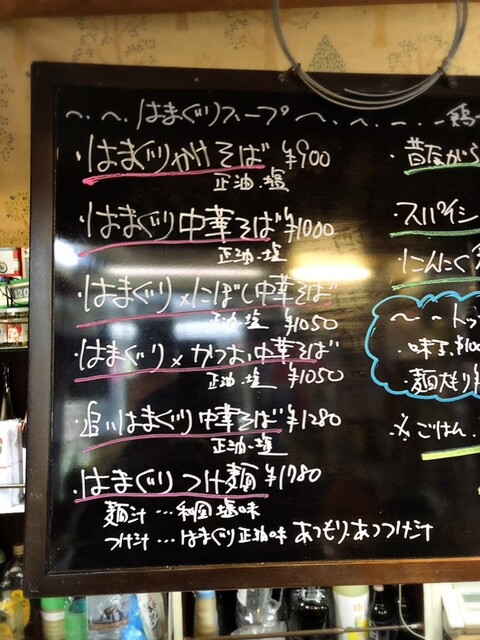 〜.〜.はまぐりスープ〜.〜.–.–
・はまぐりかけそば ¥900
正油・塩
・はまぐり中華そば ¥1000
正油・塩
・はまぐり×にぼし中華そば
正油・塩 ¥1050
・はまぐり×かつお中華そば
正油・塩 ¥1050
・追いはまぐり中華そば ¥1280
正油・塩
・はまぐりつけ麺 ¥1780
麺汁…利尻塩味
つけ汁…はまぐり正油味 あつもり・あつつけ汁
鶏
・昔ながら
・スパイシ
・にんにく
〜–トッ
・味玉 ¥100
・麺大もり ¥
※ごはん